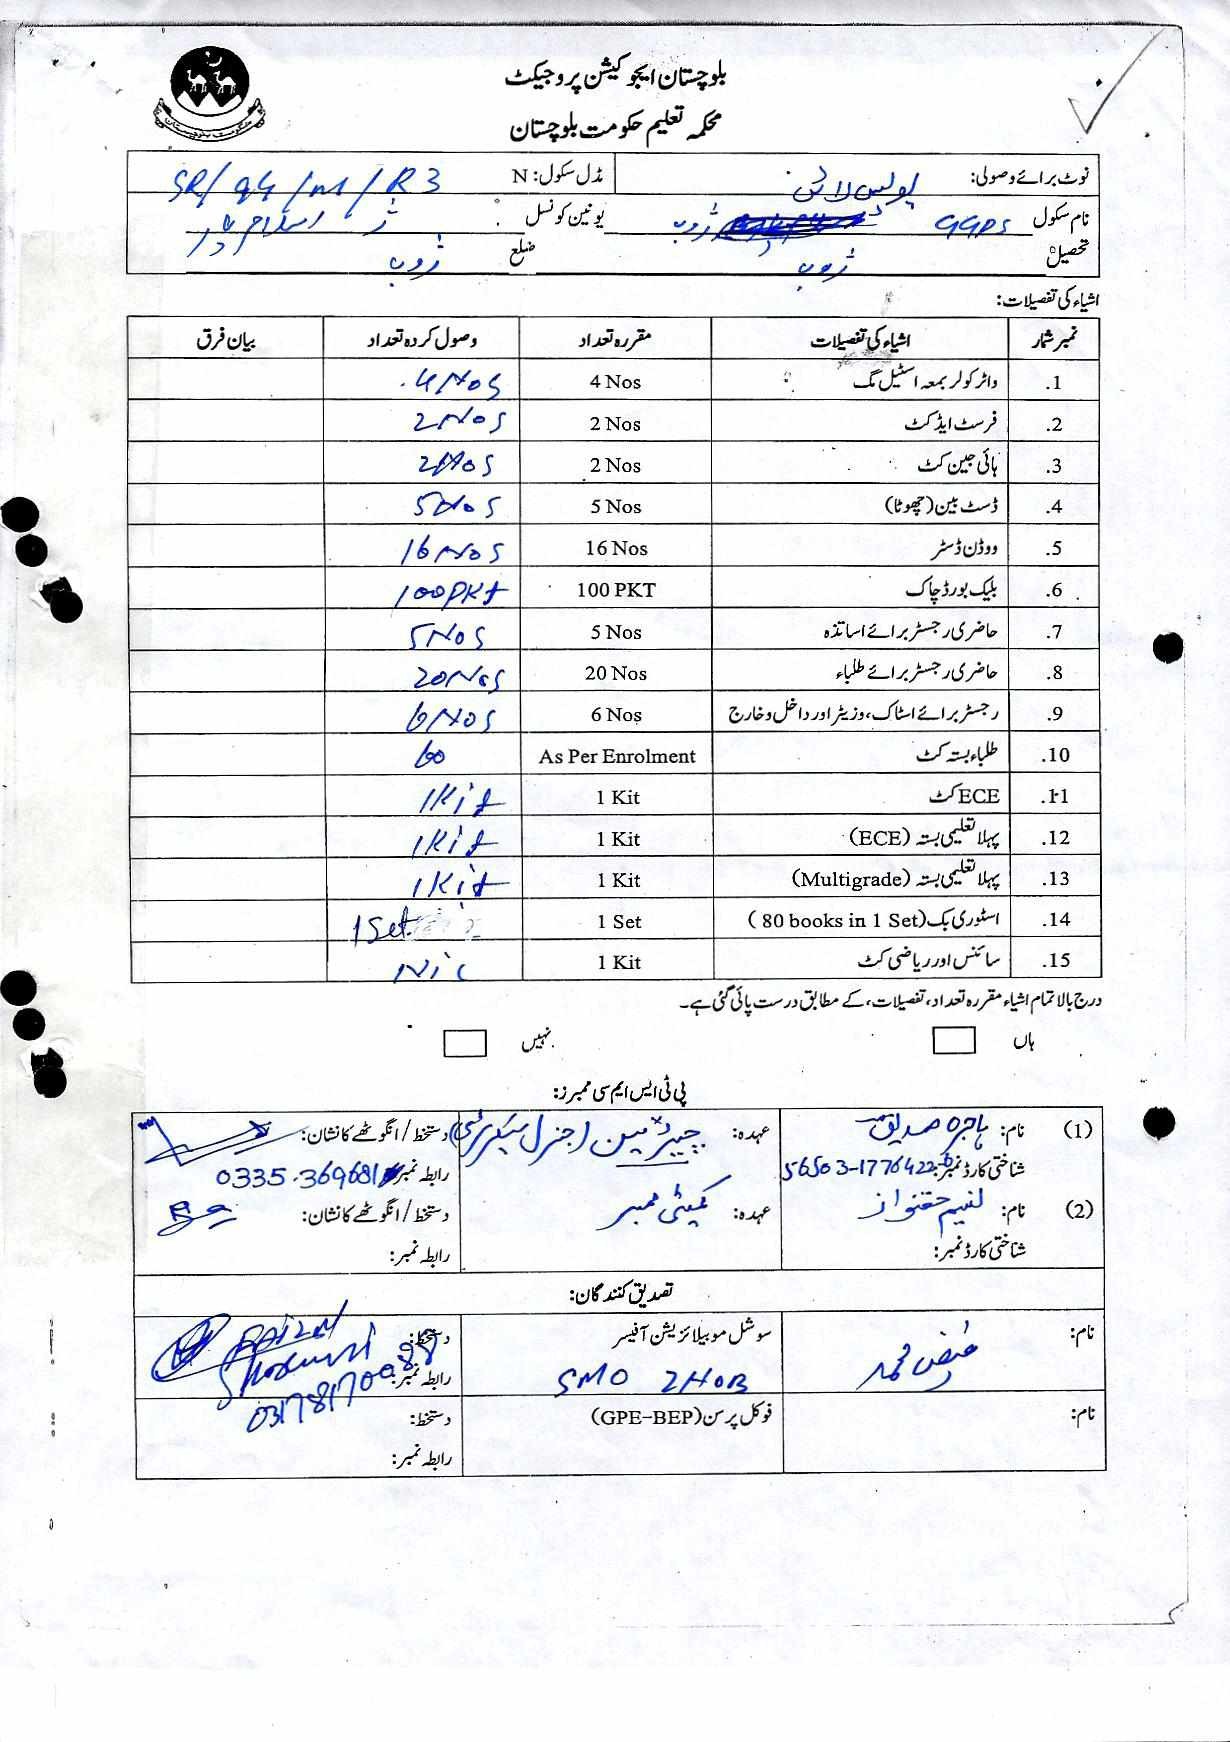 بلوچستان ایجوکیشن پروجیکٹ
محکمہ تعلیم حکومت بلوچستان
نوٹ برائے وصولی: پولیس لائن مڈل سکول: N SR/94/M/R3
نام سکول GGPS ژوب یونین کونسل اسلام
تحصیل ژوب ضلع ژوب
اشیاء کی تفصیلات:
نمبر شمار اشیاء کی تفصیلات مقررہ تعداد وصول کردہ تعداد بیان فرق
1. واٹر کولر بمعہ اسٹیل مگ 4 Nos 4 Nos
2. فرسٹ ایڈ کٹ 2 Nos 2 Nos
3. ہائی جین کٹ 2 Nos 2 Nos
4. ڈسٹ بین (چھوٹا) 5 Nos 5 Nos
5. ووڈن ڈسٹر 16 Nos 16 Nos
6. بلیک بورڈ چاک 100 PKT 100 PKt
7. حاضری رجسٹر برائے اساتذہ 5 Nos 5 Nos
8. حاضری رجسٹر برائے طلباء 20 Nos 20 Nos
9. رجسٹر برائے اسٹاک، وزیٹر اور داخل و خارج 6 Nos 6 Nos
10. طلباء بستہ کٹ As Per Enrolment 60
11. ECE کٹ 1 Kit 1 Kit
12. پہلا تعلیمی بستہ (ECE) 1 Kit 1 Kit
13. پہلا تعلیمی بستہ (Multigrade) 1 Kit 1 Kit
14. اسٹوری بک (80 books in 1 Set) 1 Set 1 Set
15. سائنس اور ریاضی کٹ 1 Kit Nil
درج بالا تمام اشیاء مقررہ تعداد، تفصیلات، کے مطابق درست پائی گئی ہے۔
ہاں نہیں
پی ٹی ایس ایم سی ممبرز:
(1) نام: ہاجرہ صدیق عہدہ: چیئرمین / جنرل سیکرٹری دستخط / انگوٹھے کا نشان:
شناختی کارڈ نمبر: 56503-1776422-6 رابطہ نمبر: 0335-369681
(2) نام: عہدہ: کمیٹی ممبر دستخط / انگوٹھے کا نشان:
شناختی کارڈ نمبر: رابطہ نمبر:
تصدیق کنندگان:
نام: فیض محمد سوشل موبیلائزیشن آفیسر دستخط:
SMO ZHOB رابطہ نمبر: 03178170988
نام: فوکل پرسن (GPE-BEP) دستخط:
رابطہ نمبر: